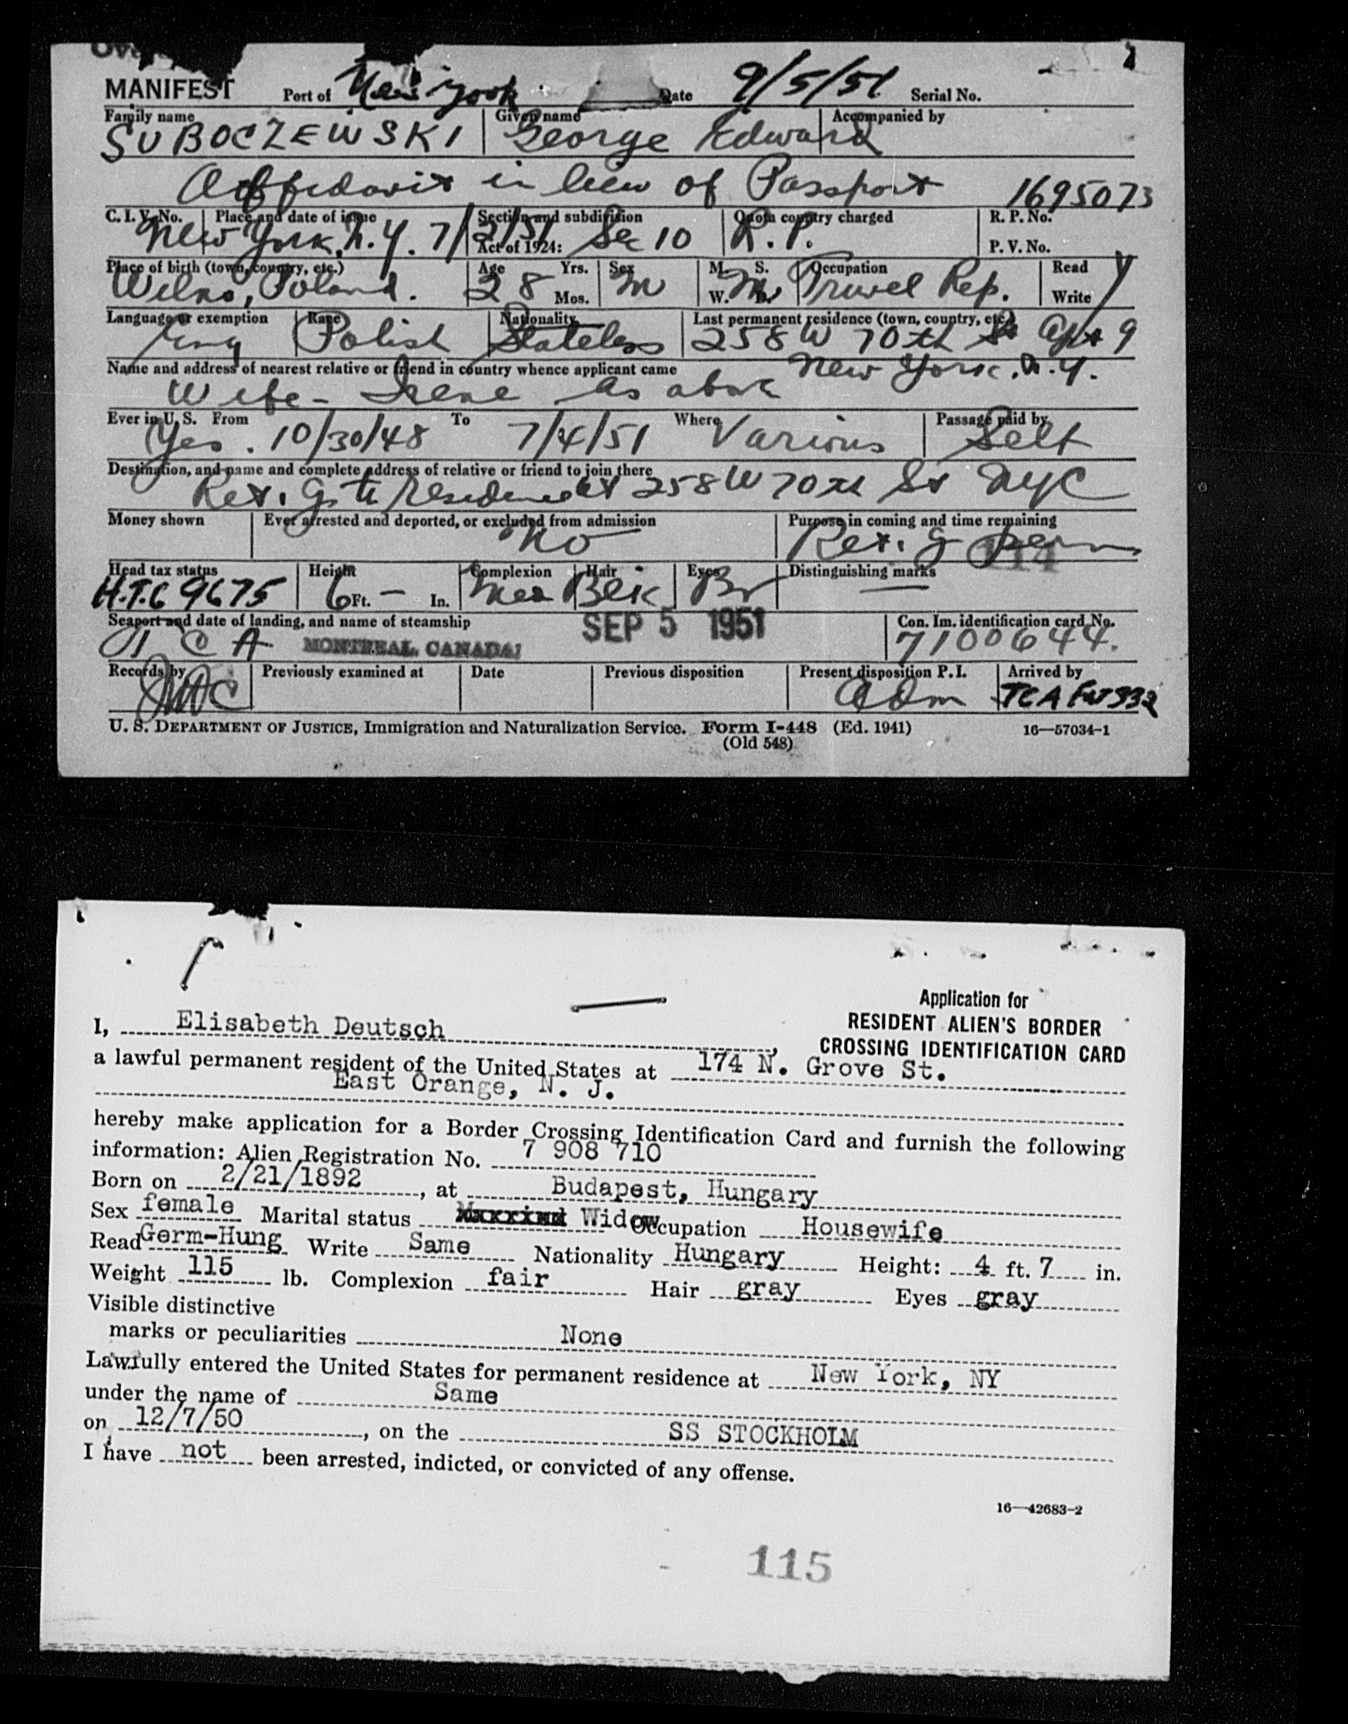 MANIFEST Port of New York Date 9/5/51 Serial No.
Family name Given name Accompanied by
SUBOCZEWSKI George Edward
Affidavit in lieu of Passport 1695073
C. I. V. No. Place and date of issue Section and subdivision Quota country charged R. P. No.
New York, N.Y. 7/2/51 Act of 1924: Sec 10 R.P. P. V. No.
Place of birth (town, country, etc.) Age Yrs. Sex M. S. Occupation Read
Wilno, Poland. 28 Mos. M W. M D. Travel Rep. Write Y
Language or exemption Race Nationality Last permanent residence (town, country, etc.)
Eng Polish Stateless 258 W 70th St Apt 9
Name and address of nearest relative or friend in country whence applicant came New York, N.Y.
Wife - Irene as above
Ever in U. S. From To Where Passage paid by
Yes. 10/30/48 7/4/51 Various Self
Destination, and name and complete address of relative or friend to join there
Ret. to residence at 258 W 70th St NYC
Money shown Ever arrested and deported, or excluded from admission Purpose in coming and time remaining
No Ret. 114
Head tax status Height Complexion Hair Eyes Distinguishing marks
H.T.C 9675 6 Ft. - In. Med Blk Br —
Seaport and date of landing, and name of steamship SEP 5 1951 Con. Im. identification card No.
T C A MONTREAL, CANADA 7100644.
Records by Previously examined at Date Previous disposition Present disposition P. I. Arrived by
Adm TCA 332
U. S. DEPARTMENT OF JUSTICE, Immigration and Naturalization Service. Form I-448 (Ed. 1941) 16—57034-1
(Old 548)
Application for
RESIDENT ALIEN'S BORDER
CROSSING IDENTIFICATION CARD
I, Elisabeth Deutsch,
a lawful permanent resident of the United States at 174 N. Grove St.
East Orange, N. J.
hereby make application for a Border Crossing Identification Card and furnish the following
information: Alien Registration No. 7 908 710
Born on 2/21/1892, at Budapest, Hungary
Sex female Marital status Widow Occupation Housewife
Read Germ-Hung Write Same Nationality Hungary Height: 4 ft. 7 in.
Weight 115 lb. Complexion fair Hair gray Eyes gray
Visible distinctive
marks or peculiarities None
Lawfully entered the United States for permanent residence at New York, NY
under the name of Same
on 12/7/50, on the SS STOCKHOLM
I have not been arrested, indicted, or convicted of any offense.
16—42683-2
115